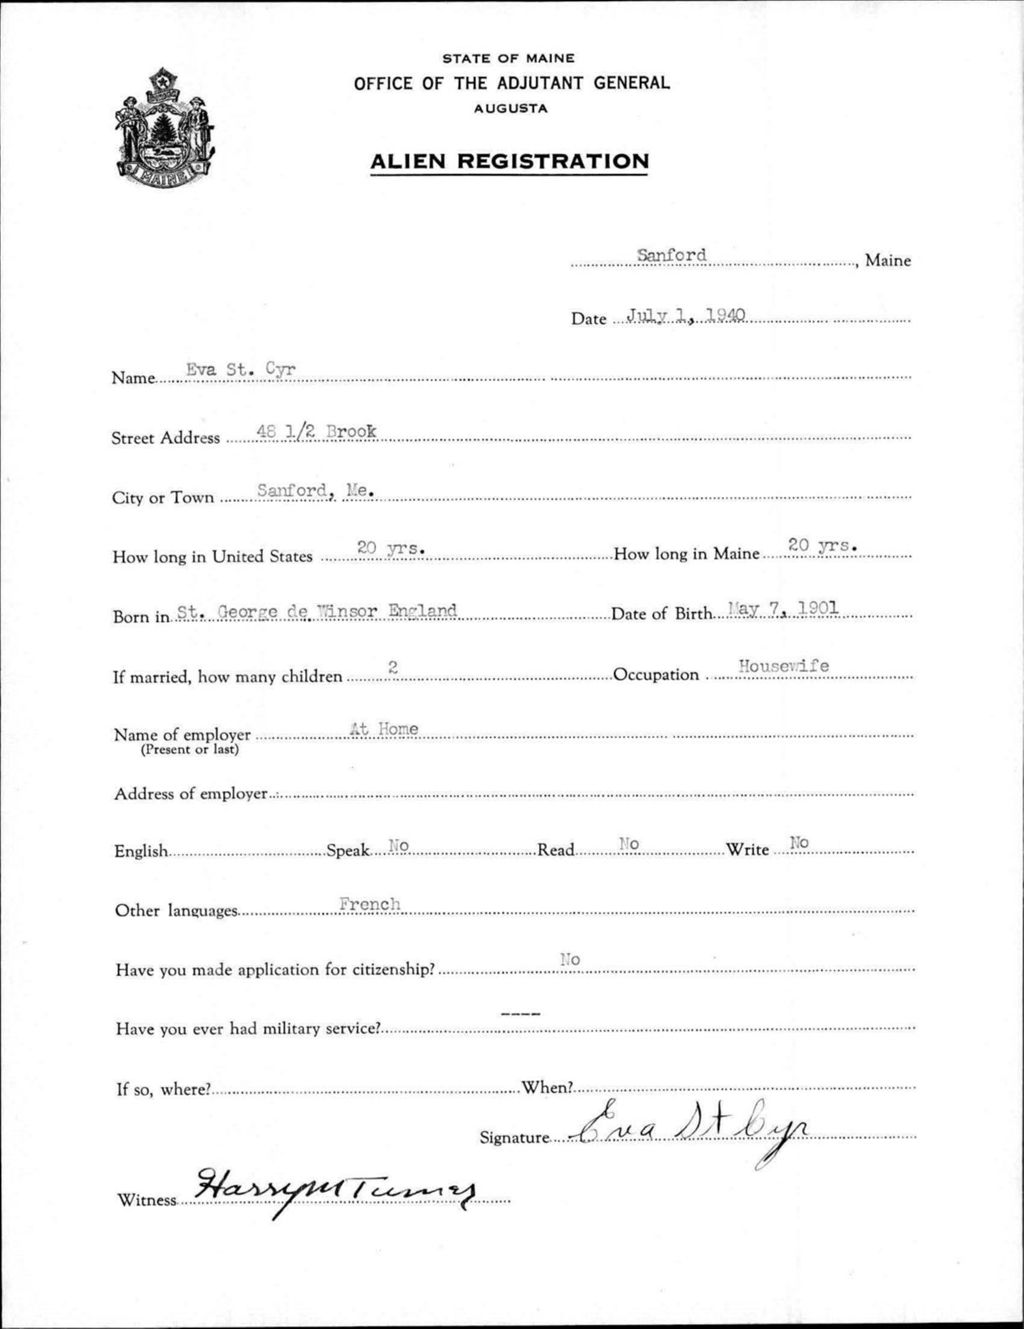 STATE OF MAINE
OFFICE OF THE ADJUTANT GENERAL
AUGUSTA
ALIEN REGISTRATION
MAINE
Sanford, Maine
Date July 1, 1940
Name Eva St. Cyr
Street Address 48 1/2 Brook
City or Town Sanford, Me.
How long in United States 20 yrs. How long in Maine 20 yrs.
Born in St. George de Winsor England Date of Birth May 7, 1901
If married, how many children 2 Occupation Housewife
Name of employer At Home
(Present or last)
Address of employer
English Speak No Read No Write No
Other languages French
Have you made application for citizenship? No
Have you ever had military service? ----
If so, where? When?
Signature Eva St Cyr
Witness Harry M